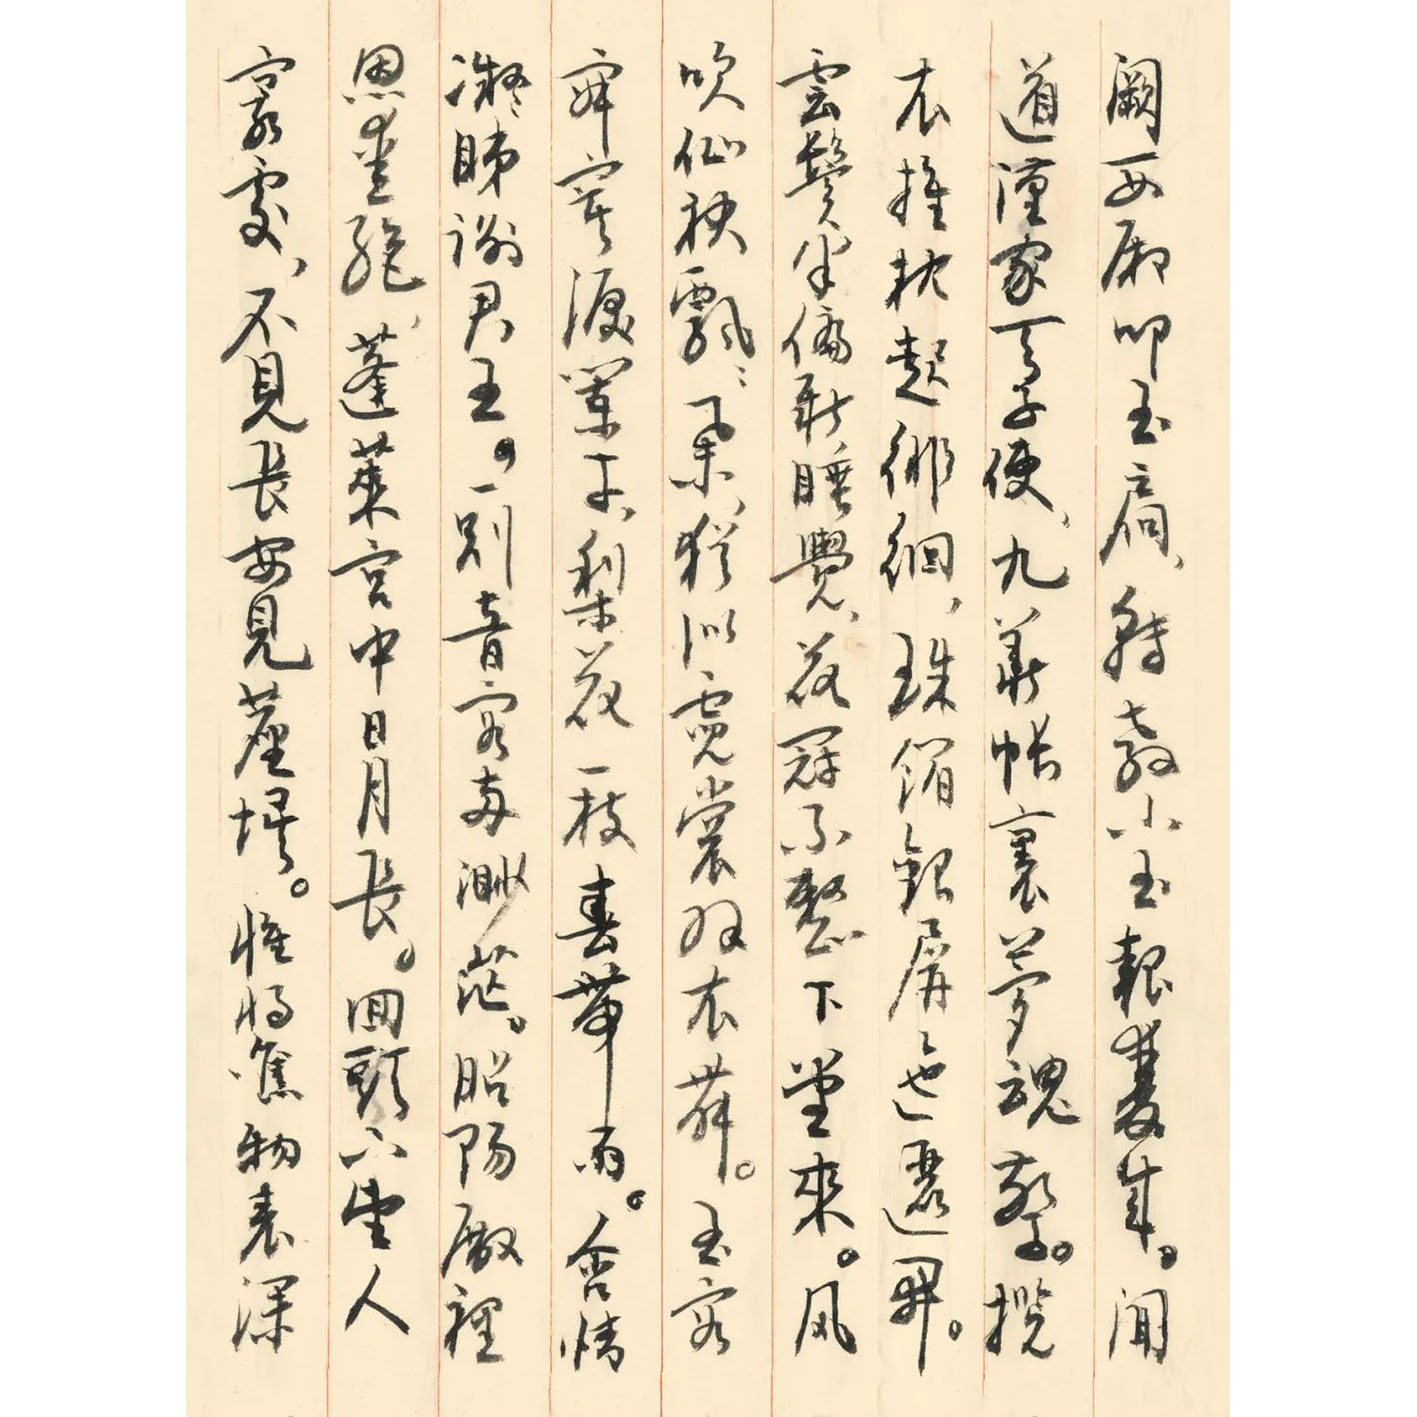 闕西廂叩玉扃、轉教小玉報雙成。聞
道漢家天子使、九華帳裏夢魂驚。攬
衣推枕起徘徊、珠箔銀屏迤邐開。
雲鬢半偏新睡覺、花冠不整下堂來。風
吹仙袂飄々舉、猶似霓裳羽衣舞。玉容
寂寞淚闌干、梨花一枝春帶雨。含情
凝睇謝君王。一別音容兩渺茫。昭陽殿裡
恩愛絕、蓬萊宮中日月長。回頭下望人
寰處、不見長安見塵埃。惟將舊物表深